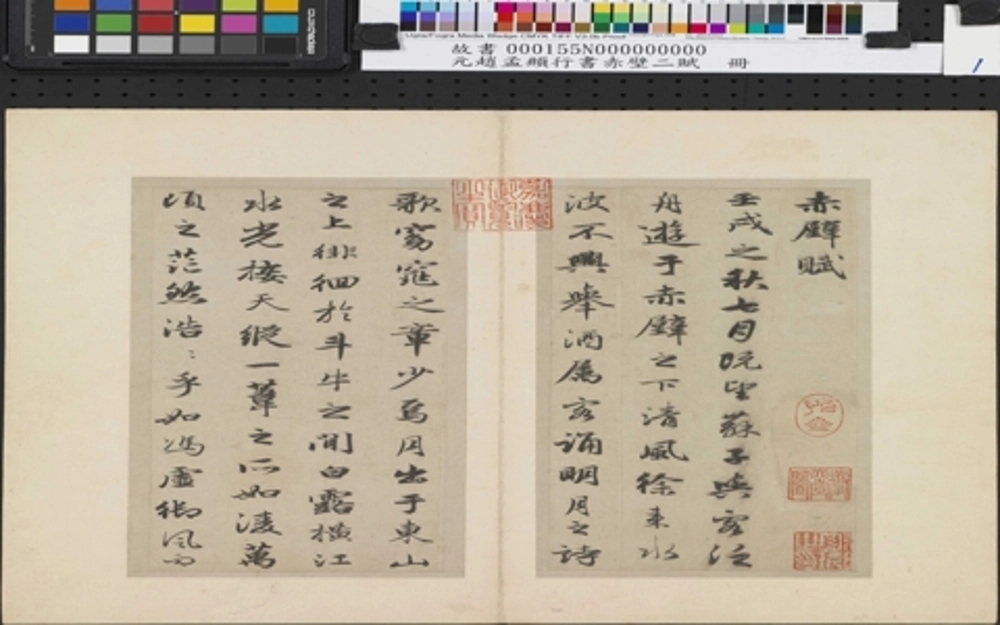 Ugra/Fogra Media Wedge CMYK
故書 000155N000000000
元趙孟頫行書赤壁二賦 冊
赤壁賦
壬戌之秋七月既望蘇子與客泛
舟遊于赤壁之下清風徐來水
波不興舉酒屬客誦明月之詩
歌窈窕之章少焉月出于東山
之上徘徊於斗牛之間白露橫江
水光接天縱一葦之所如淩萬
頃之茫然浩〻乎如馮虛御風而